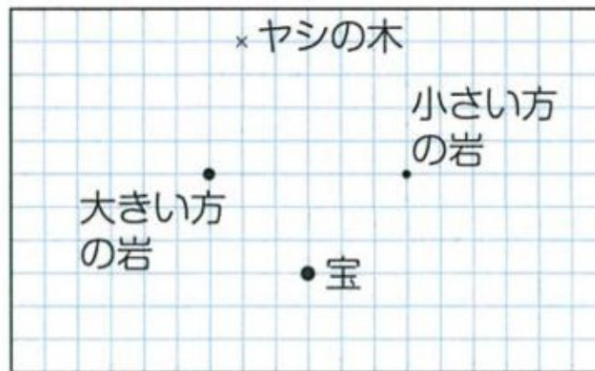 ヤシの木
小さい方
の岩
大きい方
の岩
宝